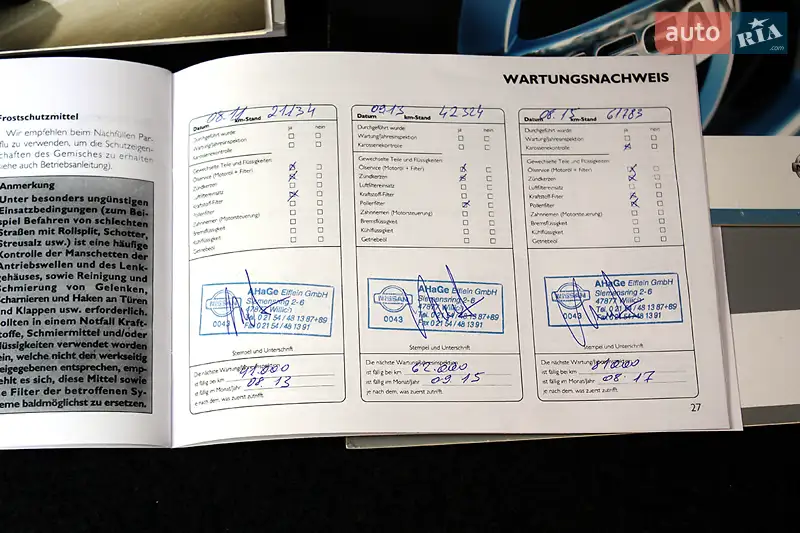 auto RIA .com
WARTUNGSNACHWEIS
Frostschutzmittel
Wir empfehlen beim Nachfüllen Par-
flu zu verwenden, um die Schutzeigen-
schaften des Gemisches zu erhalten
siehe auch Betriebsanleitung).
Anmerkung
Unter besonders ungünstigen
Einsatzbedingungen (zum Bei-
spiel Befahren von schlechten
Straßen mit Rollsplit, Schotter,
Streusalz usw.) ist eine häufige
Kontrolle der Manschetten der
Antriebswellen und des Lenk-
gehäuses, sowie Reinigung und
Schmierung von Gelenken,
Scharnieren und Haken an Türen
und Klappen usw. erforderlich.
Sollten in einem Notfall Kraft-
stoffe, Schmiermittel und/oder
Flüssigkeiten verwendet worden
sein, welche nicht den werkseitig
freigegebenen entsprechen, emp-
fiehlt es sich, diese Mittel sowie
die Filter der betroffenen Sy-
teme baldmöglichst zu ersetzen.
Datum 08.11 km-Stand 21134
Durchgeführt wurde ja nein
Wartung/Jahresinspektion
Karosseriekontrolle
Gewechselte Teile und Flüssigkeiten
Ölservice (Motoröl + Filter)
Zündkerzen
Luftfiltereinsatz
Kraftstoff-Filter
Pollenfilter
Zahnriemen (Motorsteuerung)
Bremsflüssigkeit
Kühlflüssigkeit
Getriebeöl
NISSAN
0043
AHaGe Eiflein GmbH
Siemensring 2-6
47877 Willich
Tel. 0 21 54 / 48 13 87+89
Fax 0 21 54 / 48 13 91
Stempel und Unterschrift
Die nächste Wartung/Jahresinspektion
ist fällig bei km 41.000
ist fällig im Monat/Jahr 08 13
je nach dem, was zuerst zutrifft.
Datum 09.13 km-Stand 42324
Durchgeführt wurde ja nein
Wartung/Jahresinspektion
Karosseriekontrolle
Gewechselte Teile und Flüssigkeiten
Ölservice (Motoröl + Filter)
Zündkerzen
Luftfiltereinsatz
Kraftstoff-Filter
Pollenfilter
Zahnriemen (Motorsteuerung)
Bremsflüssigkeit
Kühlflüssigkeit
Getriebeöl
NISSAN
0043
AHaGe Eiflein GmbH
Siemensring 2-6
47877 Willich
Tel. 0 21 54 / 48 13 87+89
Fax 0 21 54 / 48 13 91
Stempel und Unterschrift
Die nächste Wartung/Jahresinspektion
ist fällig bei km 62.000
ist fällig im Monat/Jahr 09 15
je nach dem, was zuerst zutrifft.
Datum 08.15 km-Stand 61783
Durchgeführt wurde ja nein
Wartung/Jahresinspektion
Karosseriekontrolle
Gewechselte Teile und Flüssigkeiten
Ölservice (Motoröl + Filter)
Zündkerzen
Luftfiltereinsatz
Kraftstoff-Filter
Pollenfilter
Zahnriemen (Motorsteuerung)
Bremsflüssigkeit
Kühlflüssigkeit
Getriebeöl
NISSAN
0043
AHaGe Eiflein GmbH
Siemensring 2-6
47877 Willich
Tel. 0 21 54 / 48 13 87+89
Fax 0 21 54 / 48 13 91
Stempel und Unterschrift
Die nächste Wartung/Jahresinspektion
ist fällig bei km 81000
ist fällig im Monat/Jahr 08.17
je nach dem, was zuerst zutrifft.
27